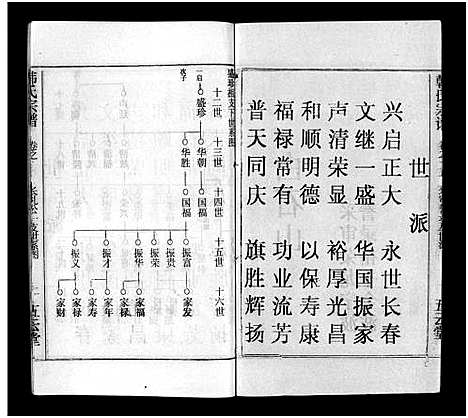 世派
兴启正大 永世长春
文继一盛 华国振家
声清荣显 裕厚光昌
和顺明德 以保寿康
福禄常有 功业流芳
普天同庆 旗胜辉扬
五云堂
盛珍祖支下世系图
十二世
十三世
十四世
十五世
十六世
一启
盛珍
次子
华朝
华胜
国福
国福
振富
振贵
振荣
振华
振才
振义
家发
家富
家福
家禄
家年
家寿
家禄
家财
韩氏宗谱
卷之
五云堂